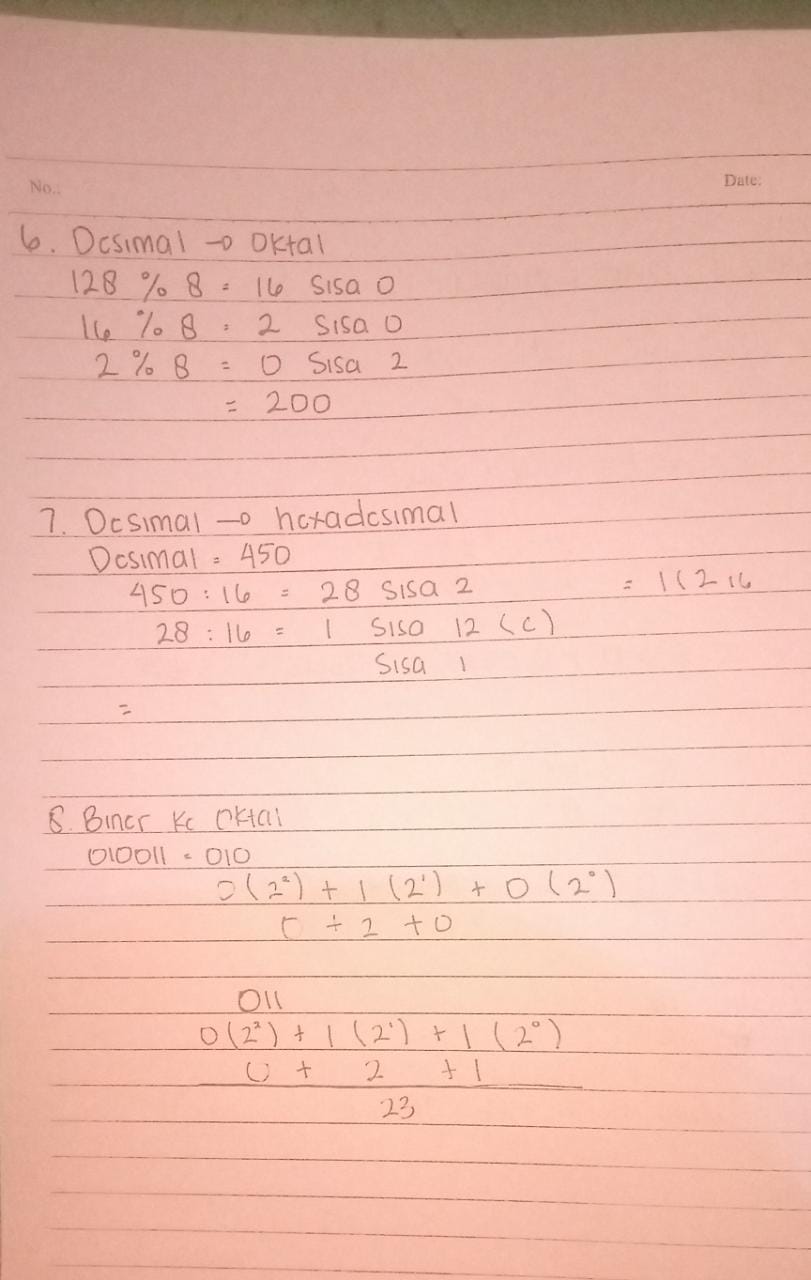 No.:
Date:
6. Desimal → Oktal
128 % 8 = 16 Sisa 0
16 % 8 = 2 Sisa 0
2 % 8 = 0 Sisa 2
= 200
7. Desimal → hexadesimal
Desimal = 450
450 : 16 = 28 Sisa 2 = 1C2 16
28 : 16 = 1 Sisa 12 (C)
Sisa 1
=
8. Biner Ke Oktal
010011 = 010
0(2²) + 1 (2¹) + 0 (2⁰)
0 + 2 + 0
011
0(2²) + 1 (2¹) + 1 (2⁰)
0 + 2 + 1
23